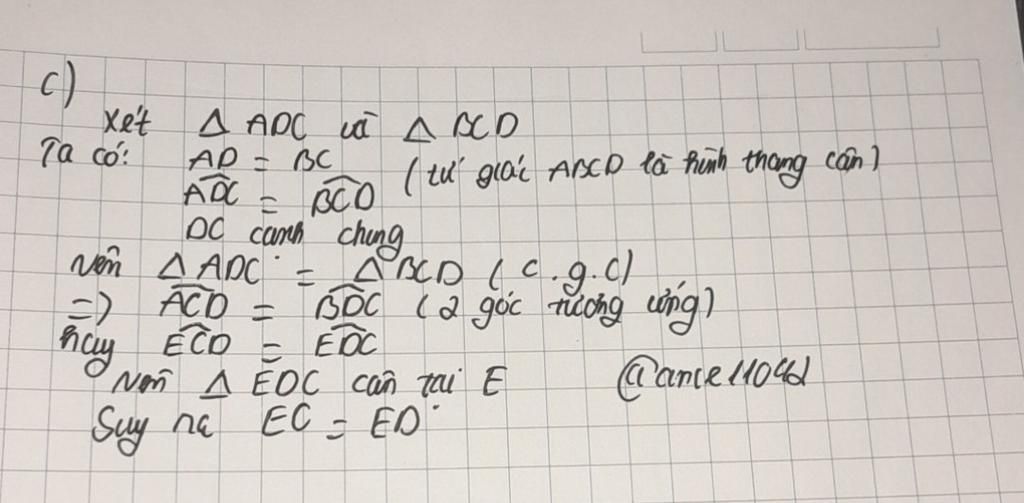 c)
Xét Δ ADC và Δ BCD
Ta có: AD = BC
(tứ giác ABCD là hình thang cân)
\widehat{ADC} = \widehat{BCD}
DC cạnh chung
Nên Δ ADC = Δ BCD (c.g.c)
=) \widehat{ACD} = \widehat{BDC} (2 góc tương ứng)
hay \widehat{ECD} = \widehat{EDC}
Nên Δ EDC cân tại E
Suy ra EC = ED